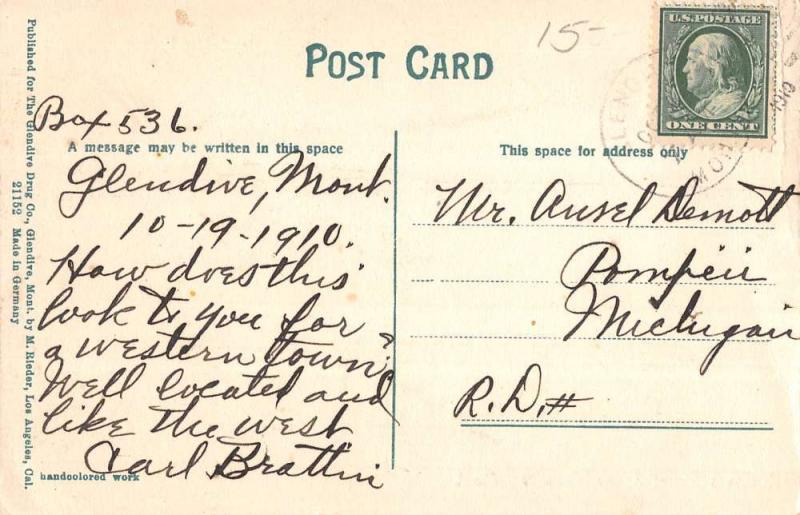 15-
U.S. POSTAGE
ONE CENT
POST CARD
Box 536.
A message may be written in this space
Glendive, Mont.
10-19-1910.
How does this
look to you for
a western town?
Well located and
like the west
Carl Brattin
handcolored work
This space for address only
Mr. Ansel Demott
Pompeii
Michigan
R.D.#
Published for The Glendive Drug Co., Glendive, Mont. by M. Rieder, Los Angeles, Cal.
21152 Made in Germany